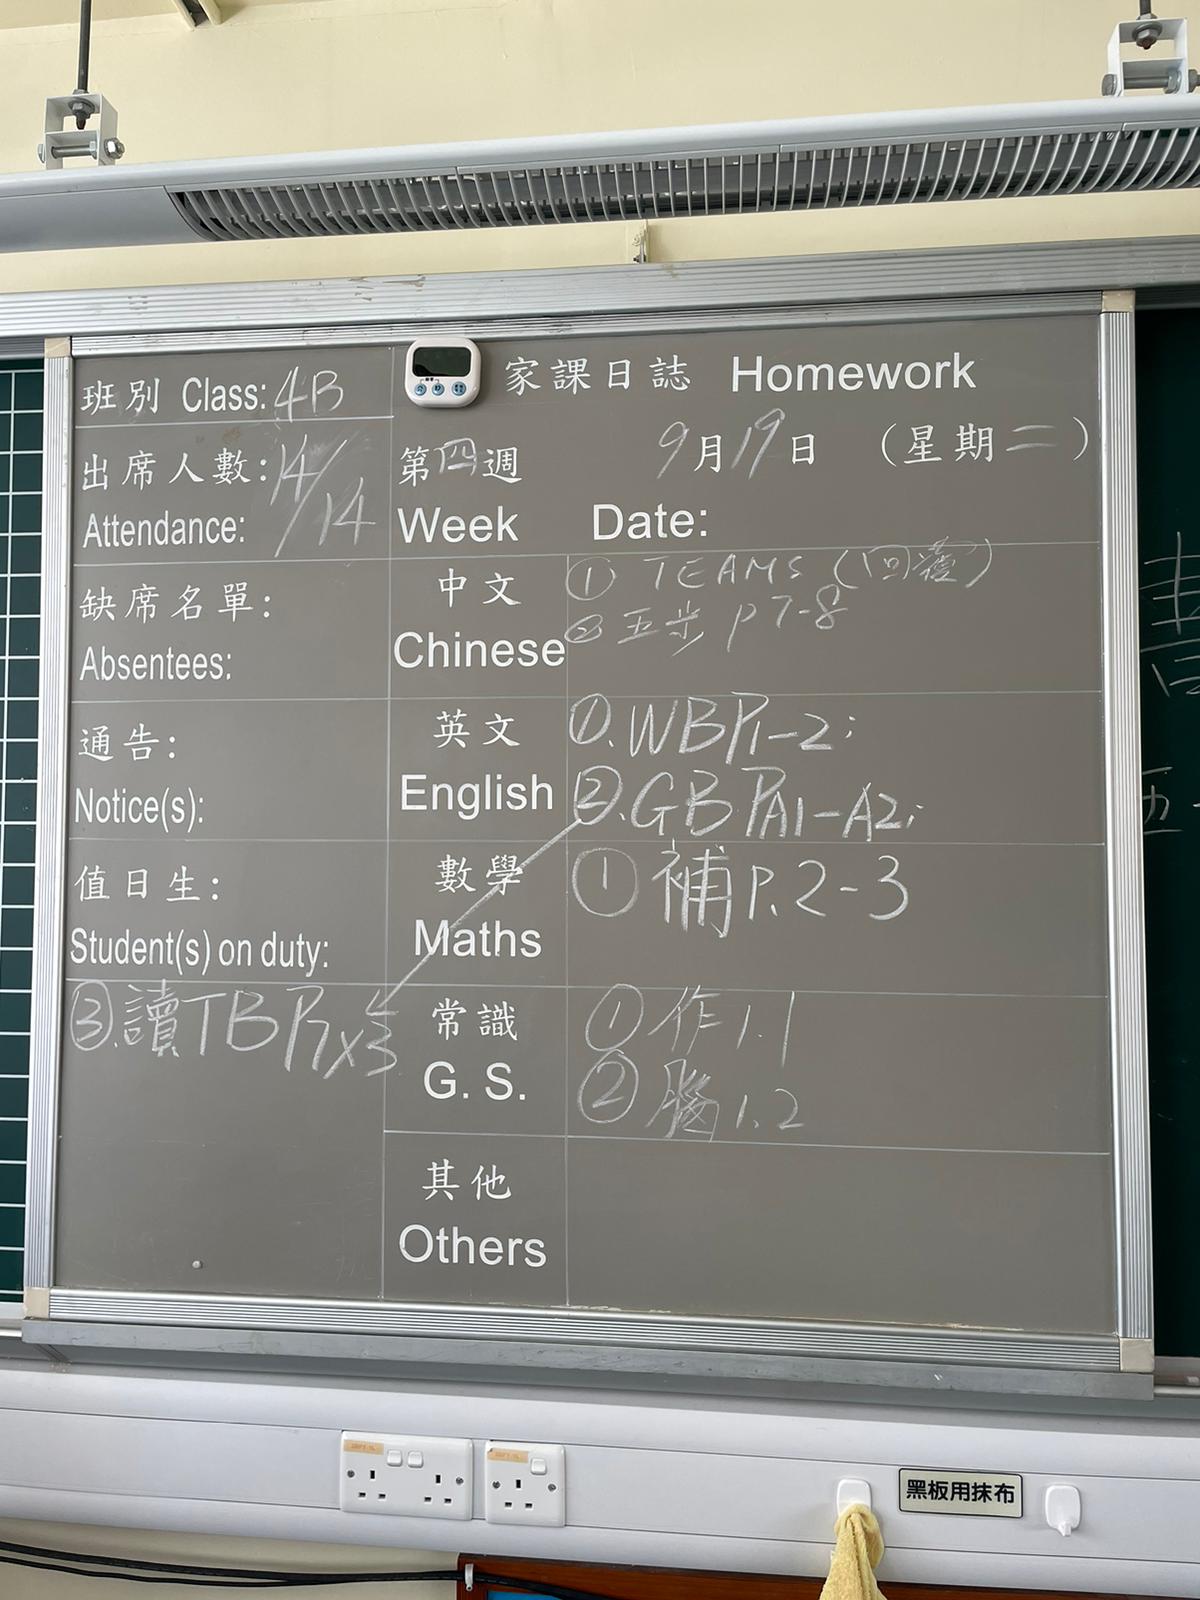 班別 Class: 4B
家課日誌 Homework
出席人數: 14/14
Attendance:
第四週 9月19日 (星期二)
Week Date:
缺席名單:
Absentees:
中文
Chinese
① TEAMS (回覆)
② 五步 P7-8
通告:
Notice(s):
英文
English
①. WBP1-2;
②. GB PA1-A2;
③. 讀TBP7x3
值日生:
Student(s) on duty:
數學
Maths
① 補P.2-3
常識
G. S.
① 作1.1
② 腦1.2
其他
Others
黑板用抹布